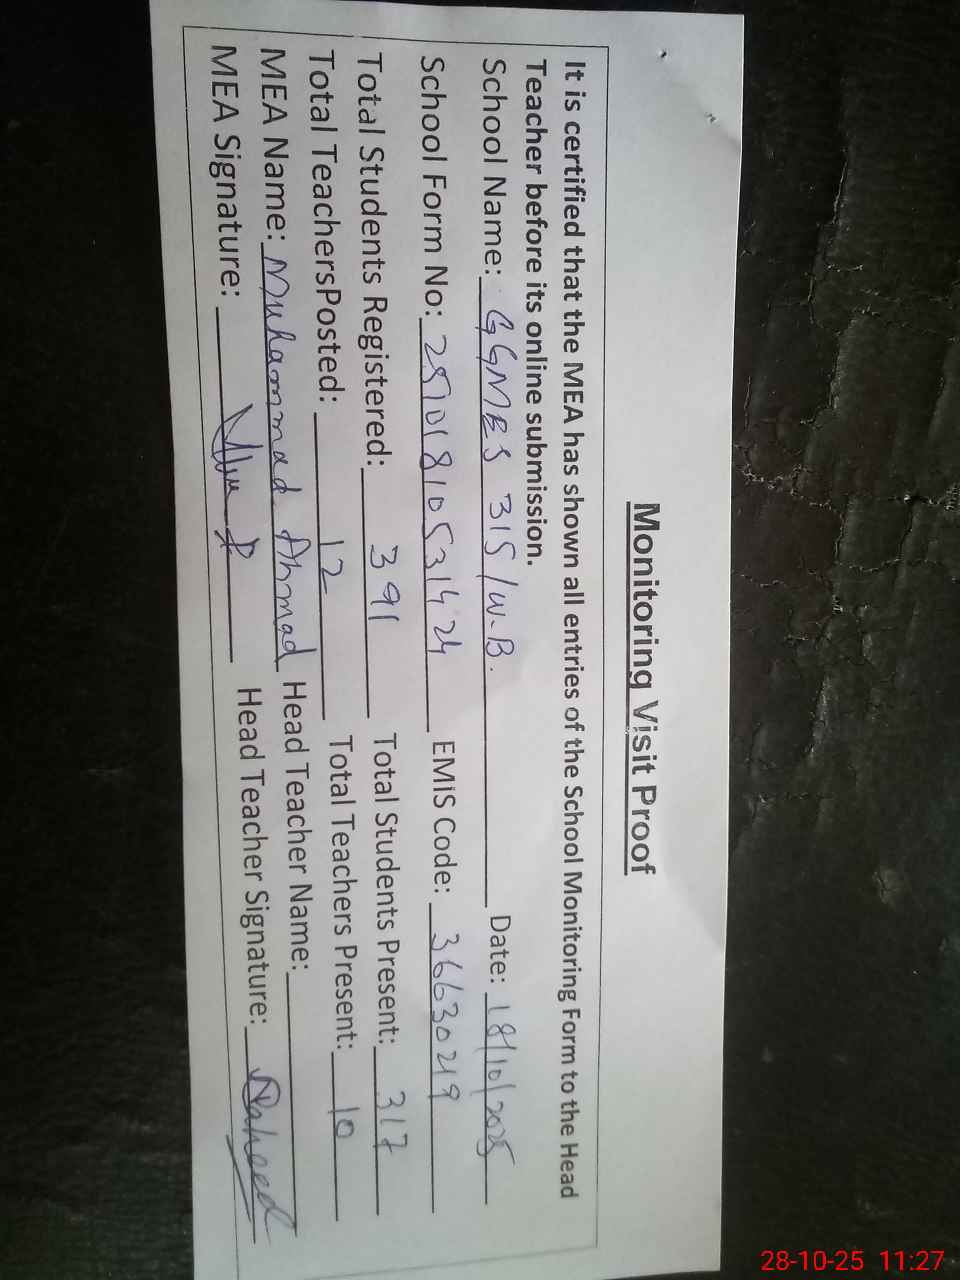 Monitoring Visit Proof
It is certified that the MEA has shown all entries of the School Monitoring Form to the Head
Teacher before its online submission.
School Name: GGMES 315/W.B. Date: 18/10/2025
School Form No: 25101810531424 EMIS Code: 36630219
Total Students Registered: 391 Total Students Present: 317
Total TeachersPosted: 12 Total Teachers Present: 10
MEA Name: Muhammad Ahmad Head Teacher Name:
MEA Signature: Head Teacher Signature: Naheed
28-10-25 11:27